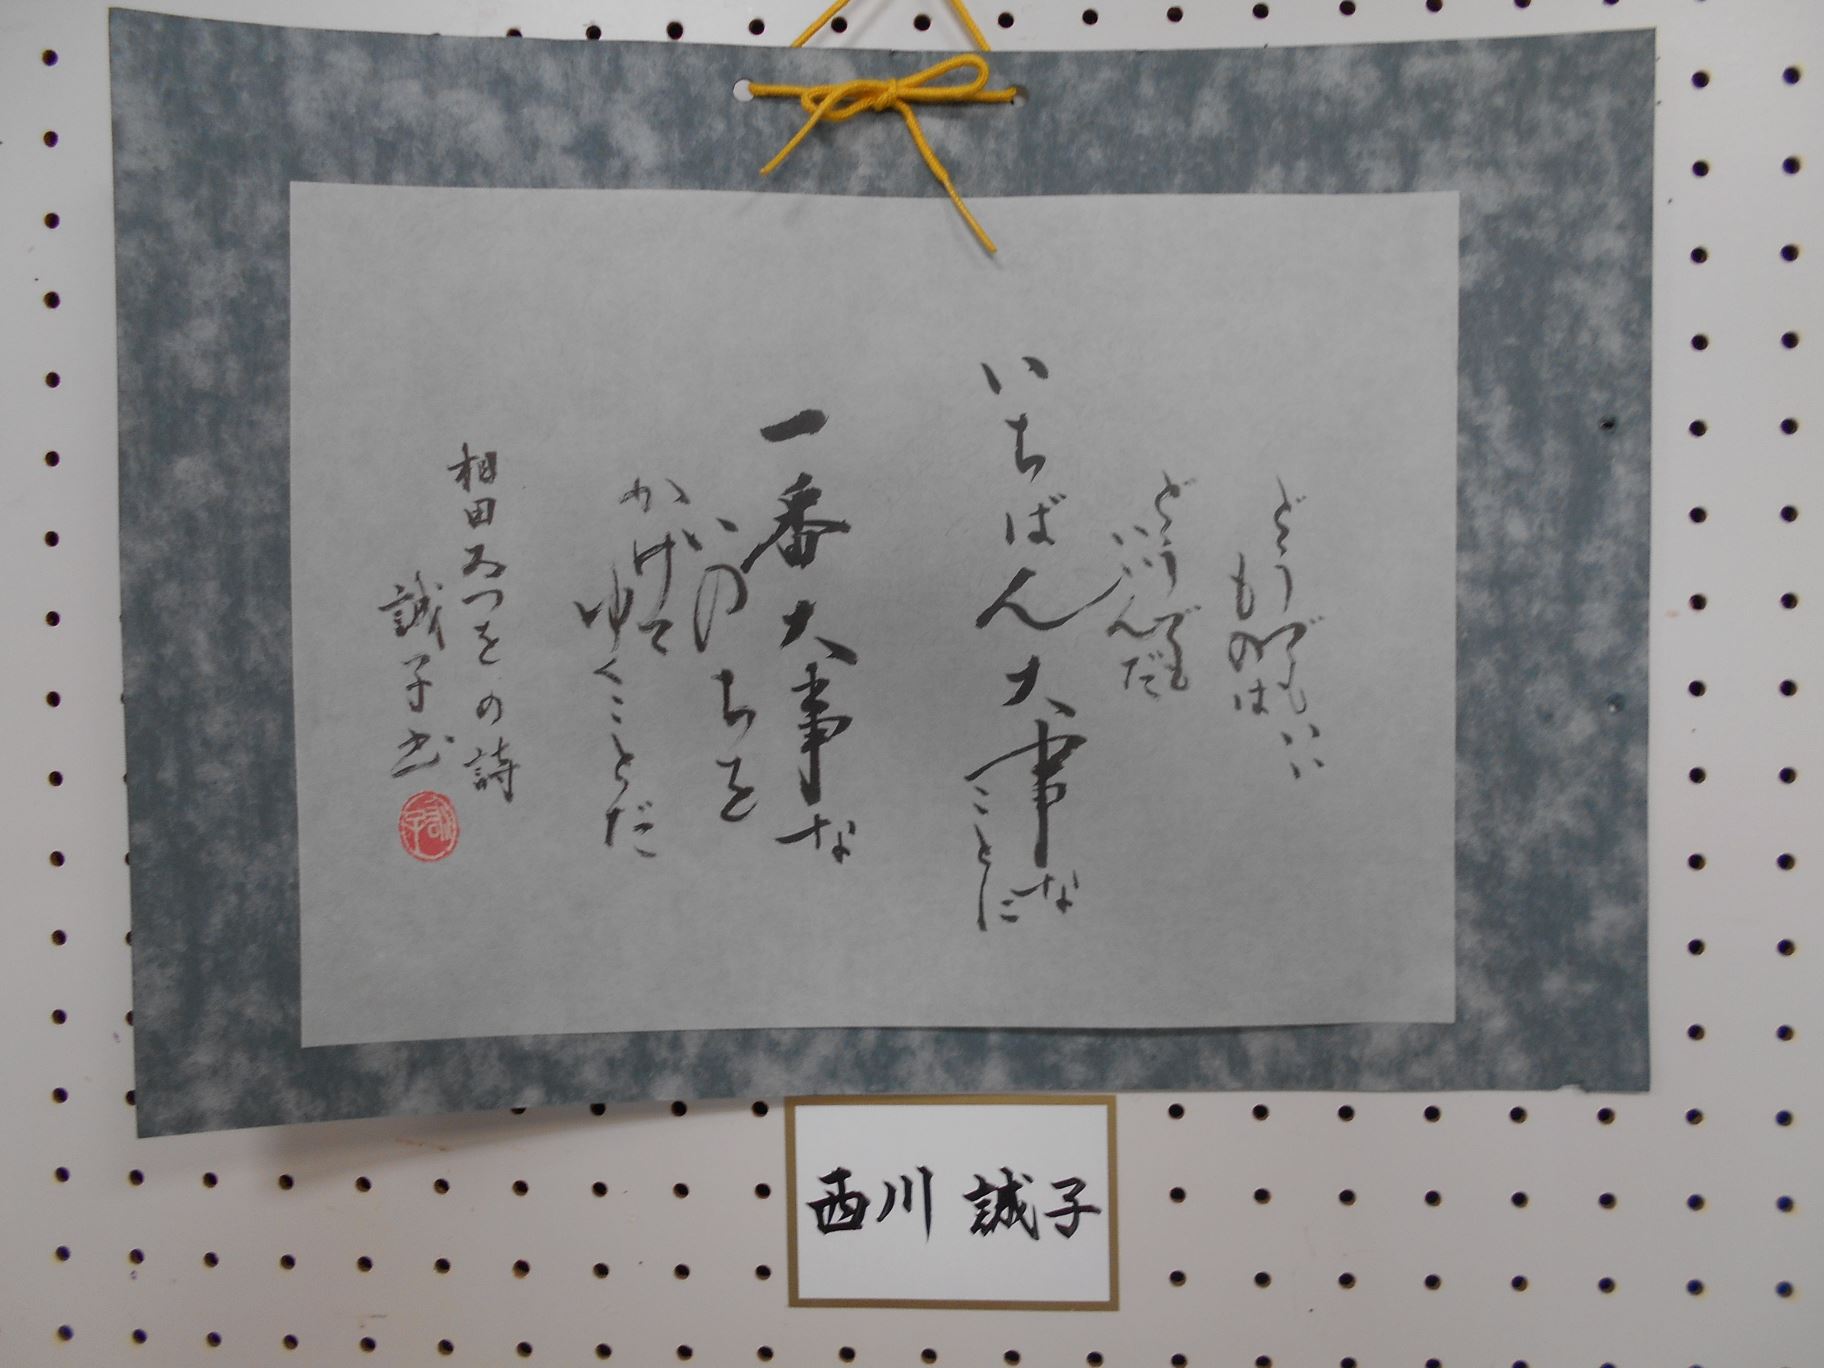 どうでもいい
ものは
どうでも
いいんだ
いちばん大事な
ことに
一番大事な
いのちを
かけて
ゆくことだ
相田みつをの詩
誠子書
西川 誠子